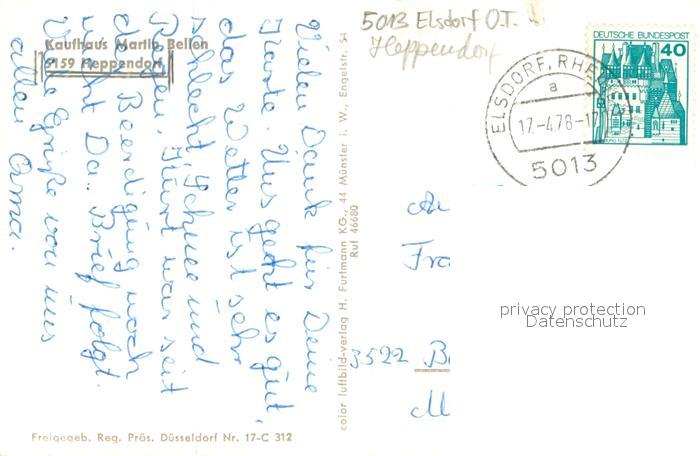 Kaufhaus Martin Bellen
5159 Heppendorf
Vielen Dank für Deine
Karte. Uns geht es gut,
das Wetter ist sehr
schlecht Schnee und
Regen, Kurt war seit
der Beerdigung noch
nicht Da. Brief folgt.
Viele Grüße von uns
allen Oma.
Freigegeb. Reg. Präs. Düsseldorf Nr. 17-C 312
color luftbild-verlag H. Furtmann KG., 44 Münster i. W., Engelstr. 54
Ruf 46680
5013 Elsdorf O.T.
Heppendorf
DEUTSCHE BUNDESPOST
40
ELSDORF, RHE
a
17.-4.78-17
5013
An
Fra
3522
privacy protection
Datenschutz